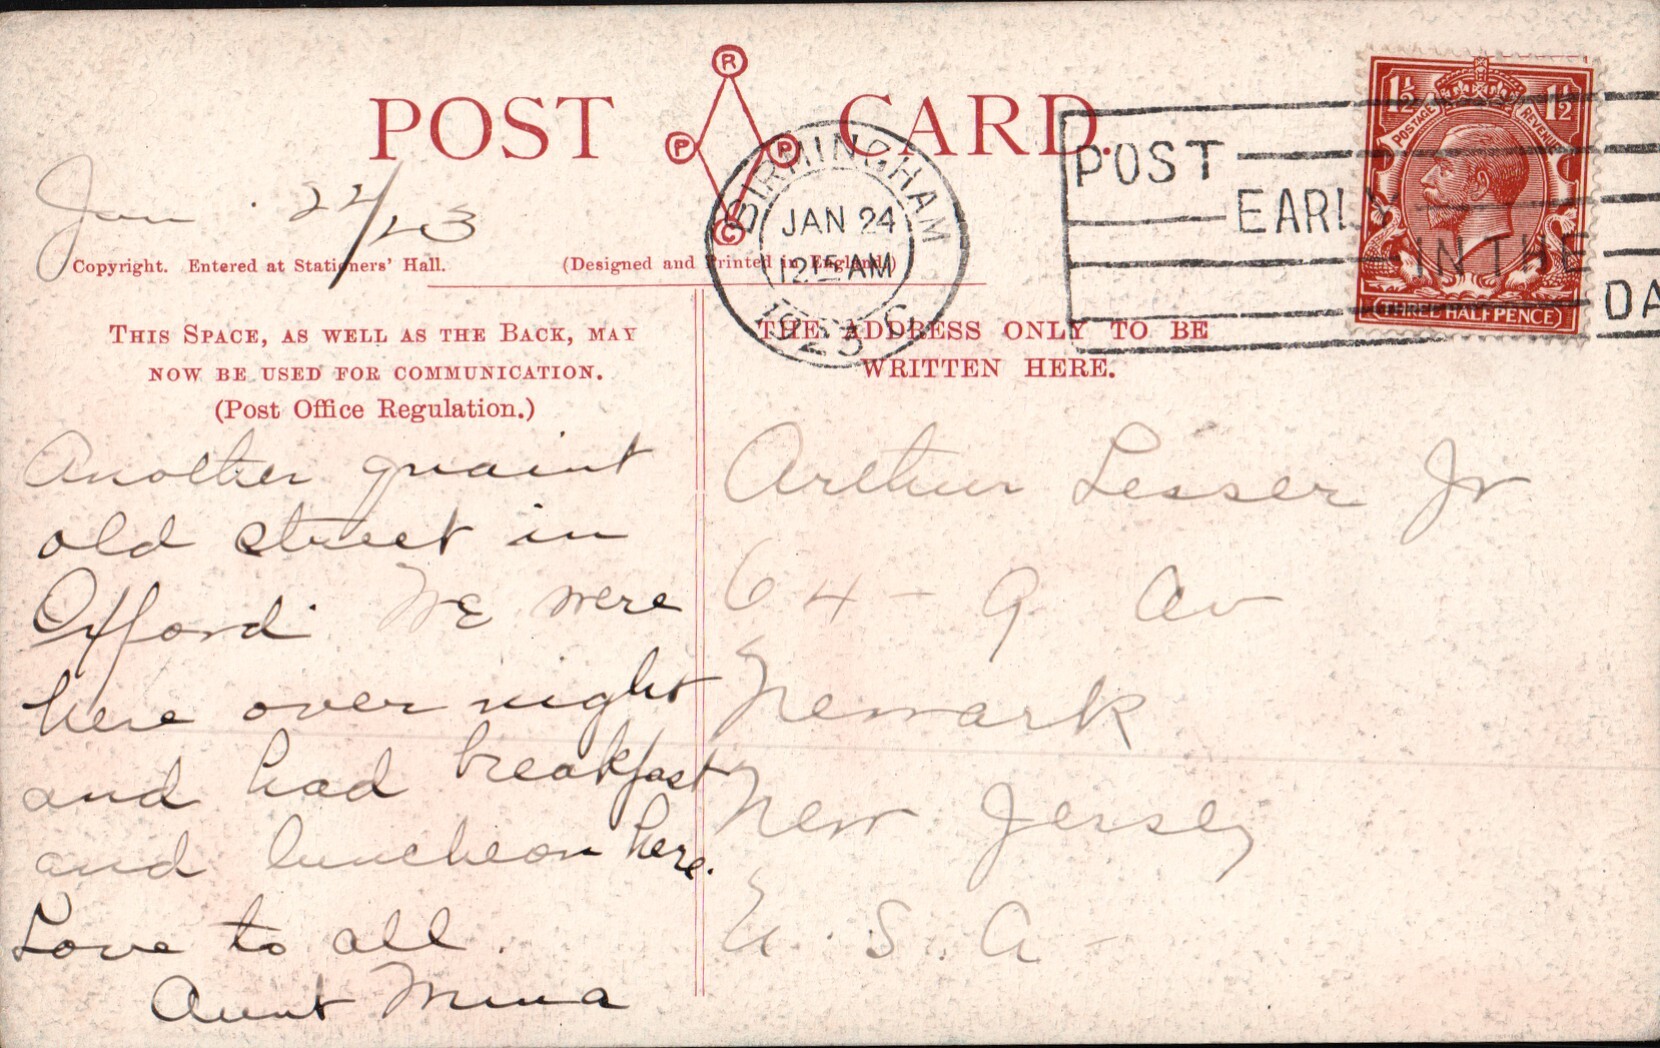 POST CARD.
R
P P
C
Jan. 24/23
Copyright. Entered at Stationers' Hall.
(Designed and Printed in England.)
BIRMINGHAM
JAN 24
1215 AM
1923
POST
EARLY
IN THE
DA
1½ 1½
POSTAGE REVENUE
THREE HALFPENCE
THIS SPACE, AS WELL AS THE BACK, MAY
NOW BE USED FOR COMMUNICATION.
(Post Office Regulation.)
THE ADDRESS ONLY TO BE
WRITTEN HERE.
Another quaint
old street in
Oxford. We were
here over night
and had breakfast
and luncheon here.
Love to all.
Aunt Mina
Arthur Lesser Jr
64 - 9 Av
Newark
New Jersey
U.S.A-